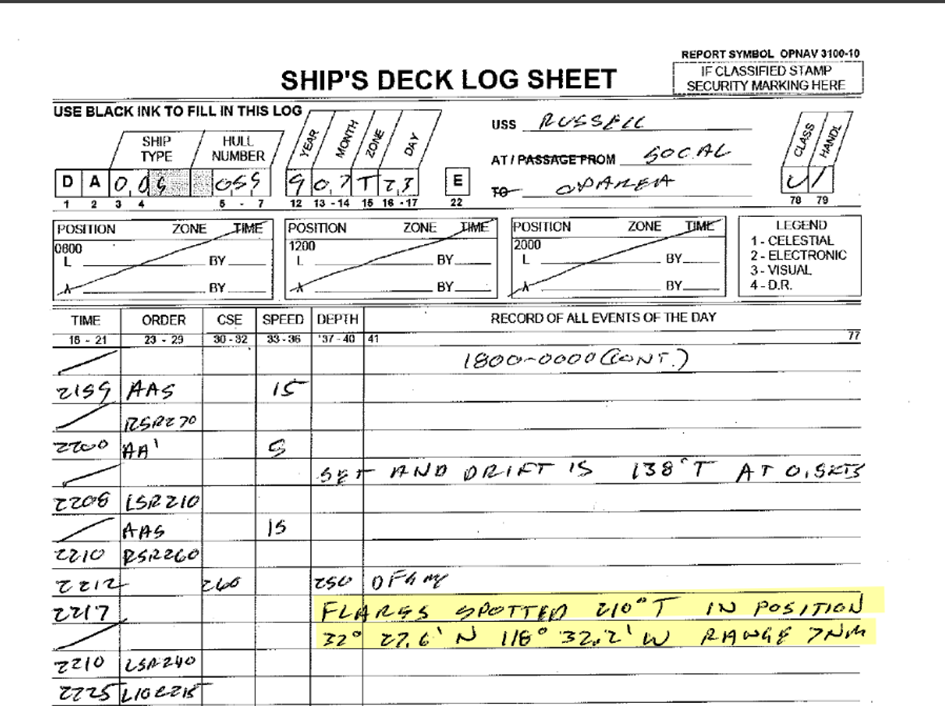 REPORT SYMBOL OPNAV 3100-10
SHIP'S DECK LOG SHEET
IF CLASSIFIED STAMP
SECURITY MARKING HERE
USE BLACK INK TO FILL IN THIS LOG
SHIP TYPE HULL NUMBER YEAR MONTH ZONE DAY
USS RUSSELL
AT / PASSAGE FROM SOCAL
TO OPAREA
CLASS HANDL
D A 059 9 0,7 T 23 E U
1 2 3 4 5 - 7 12 13 - 14 15 16 - 17 22 78 79
POSITION ZONE TIME POSITION ZONE TIME POSITION ZONE TIME
0800 1200 2000
L BY L BY L BY
λ BY λ BY λ BY
LEGEND
1 - CELESTIAL
2 - ELECTRONIC
3 - VISUAL
4 - D.R.
TIME ORDER CSE SPEED DEPTH RECORD OF ALL EVENTS OF THE DAY
18 - 21 23 - 29 30 - 32 33 - 36 37 - 40 41 77
1800-0000 (CONT.)
2159 AAS 15
RSR270
2200 AA' 5
SET AND DRIFT IS 138°T AT 0.5KTS
2208 LSR210
AAS 15
2210 RSR260
2212 260 250
2217 FLARES SPOTTED 210°T IN POSITION
32° 27.6' N 118° 32.2' W RANGE 7NM
2210 LSR240
2225